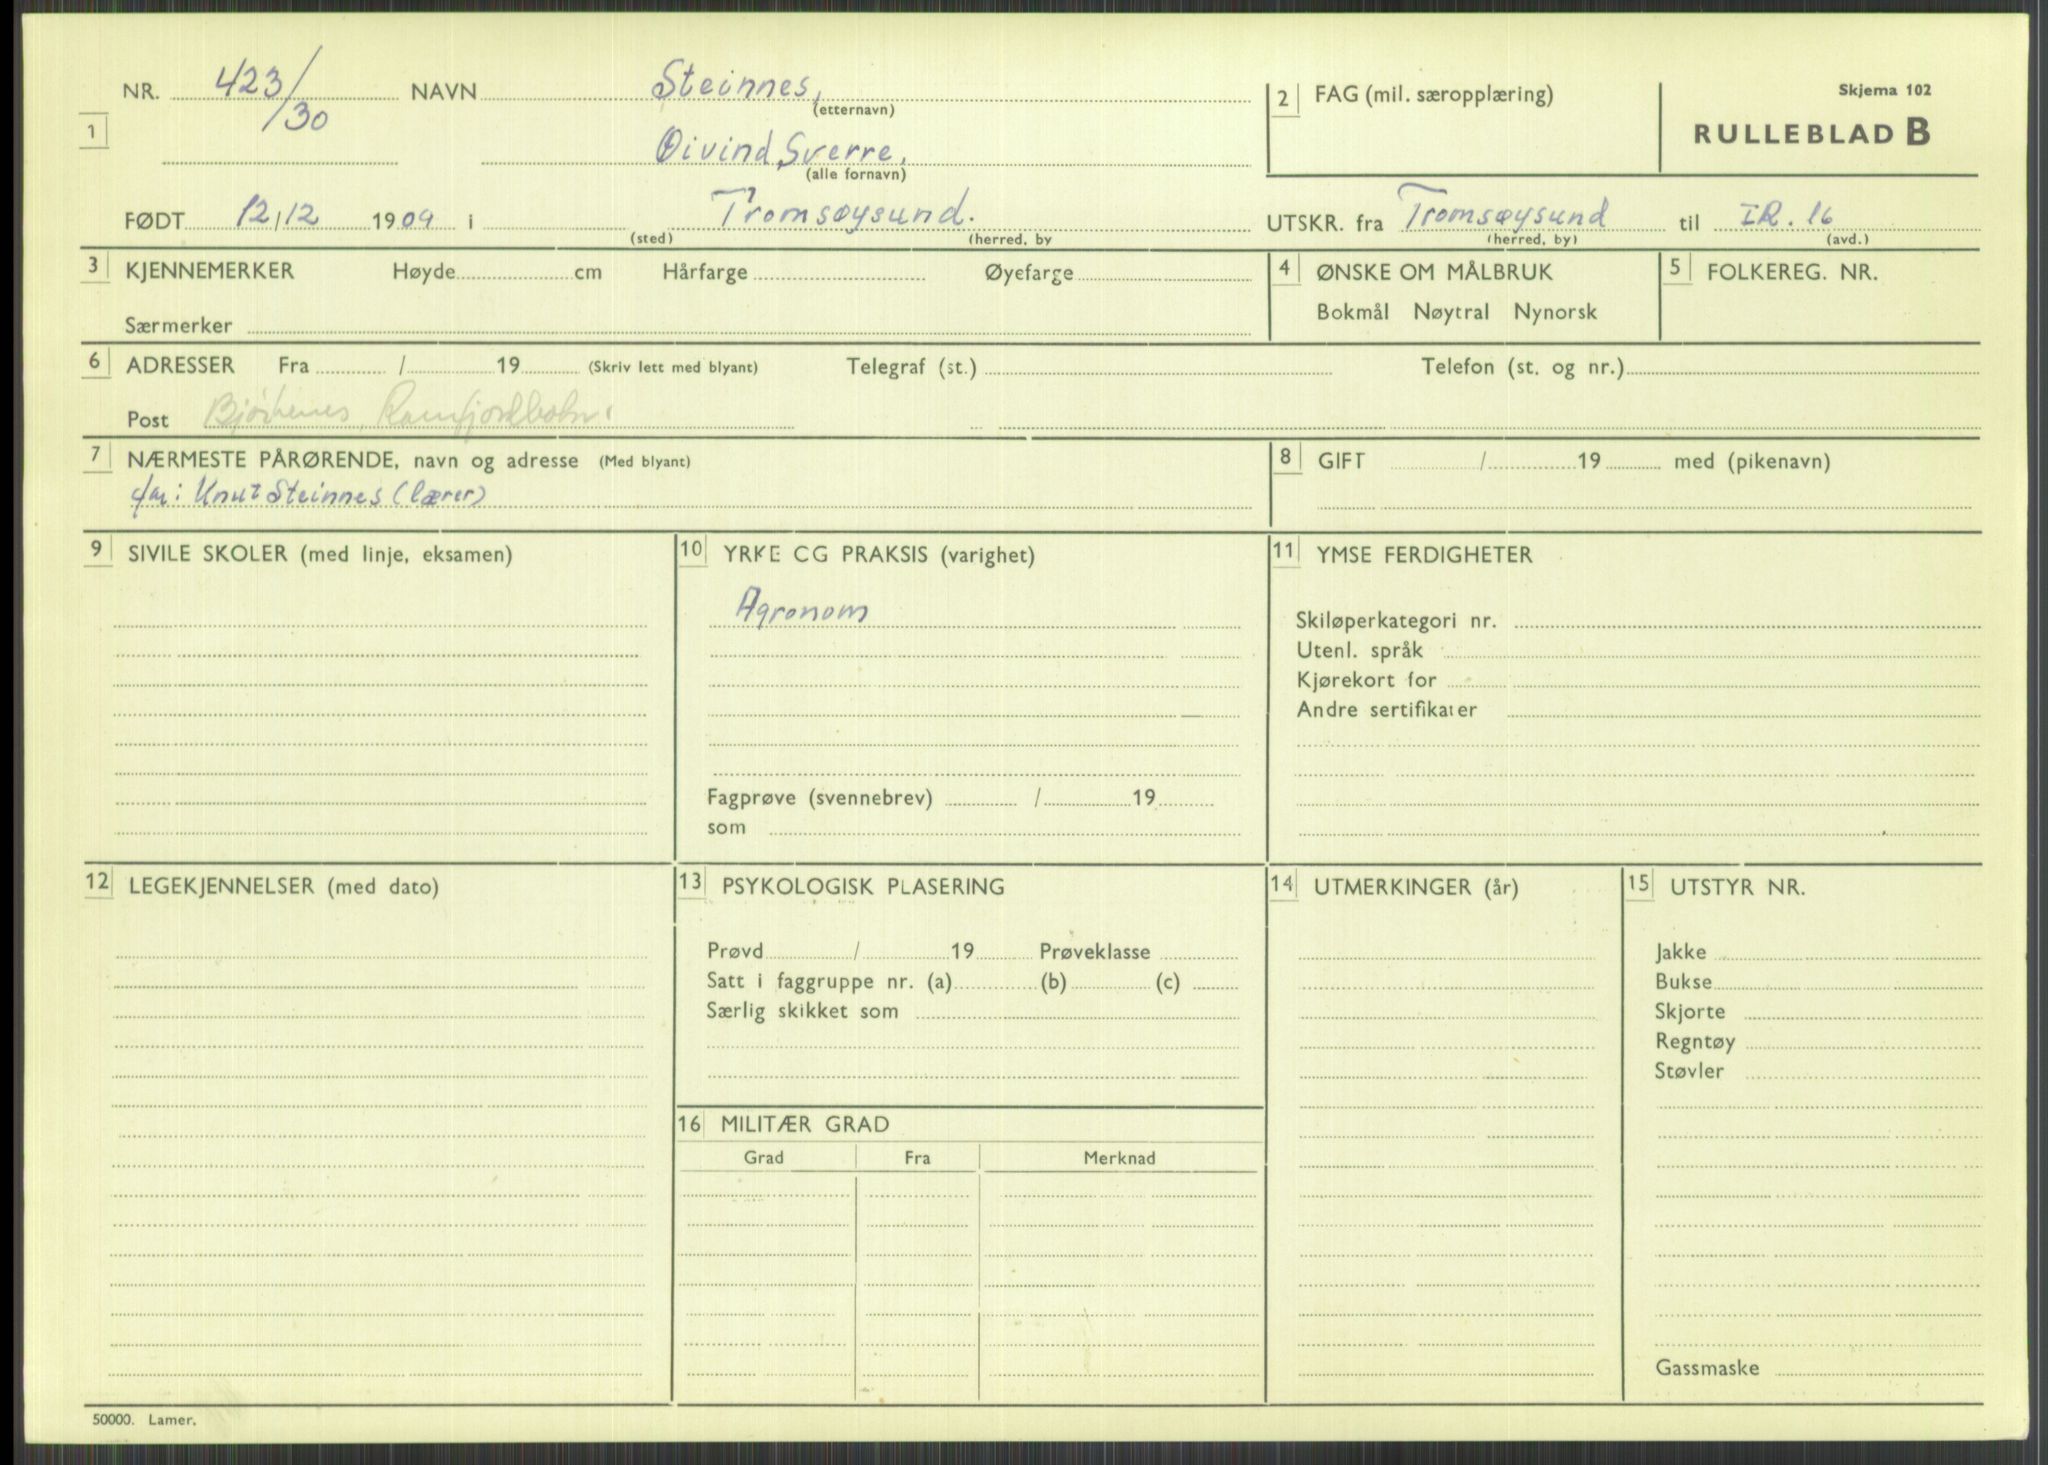 NR. 423/30 NAVN Steinnes,
(etternavn)
2 FAG (mil. særopplæring)
Skjema 102
RULLEBLAD B
1
Øivind Sverre.
(alle fornavn)
FØDT 12/12 1909 i Tromsøysund.
(sted) (herred, by
UTSKR. fra Tromsøysund til I.R. 16
(herred, by) (avd.)
3 KJENNEMERKER Høyde cm Hårfarge Øyefarge
Særmerker
4 ØNSKE OM MÅLBRUK
Bokmål Nøytral Nynorsk
5 FOLKEREG. NR.
6 ADRESSER Fra / 19 (Skriv lett med blyant) Telegraf (st.) Telefon (st. og nr.)
Post
7 NÆRMESTE PÅRØRENDE, navn og adresse (Med blyant)
far: Knut Steinnes (lærer)
8 GIFT / 19 med (pikenavn)
9 SIVILE SKOLER (med linje, eksamen)
10 YRKE CG PRAKSIS (varighet)
Agronom
Fagprøve (svennebrev) / 19
som
11 YMSE FERDIGHETER
Skiløperkategori nr.
Utenl. språk
Kjørekort for
Andre sertifikater
12 LEGEKJENNELSER (med dato)
13 PSYKOLOGISK PLASERING
Prøvd / 19 Prøveklasse
Satt i faggruppe nr. (a) (b) (c)
Særlig skikket som
14 UTMERKINGER (år)
15 UTSTYR NR.
Jakke
Bukse
Skjorte
Regntøy
Støvler
Gassmaske
16 MILITÆR GRAD
Grad Fra Merknad
50000. Lamer.